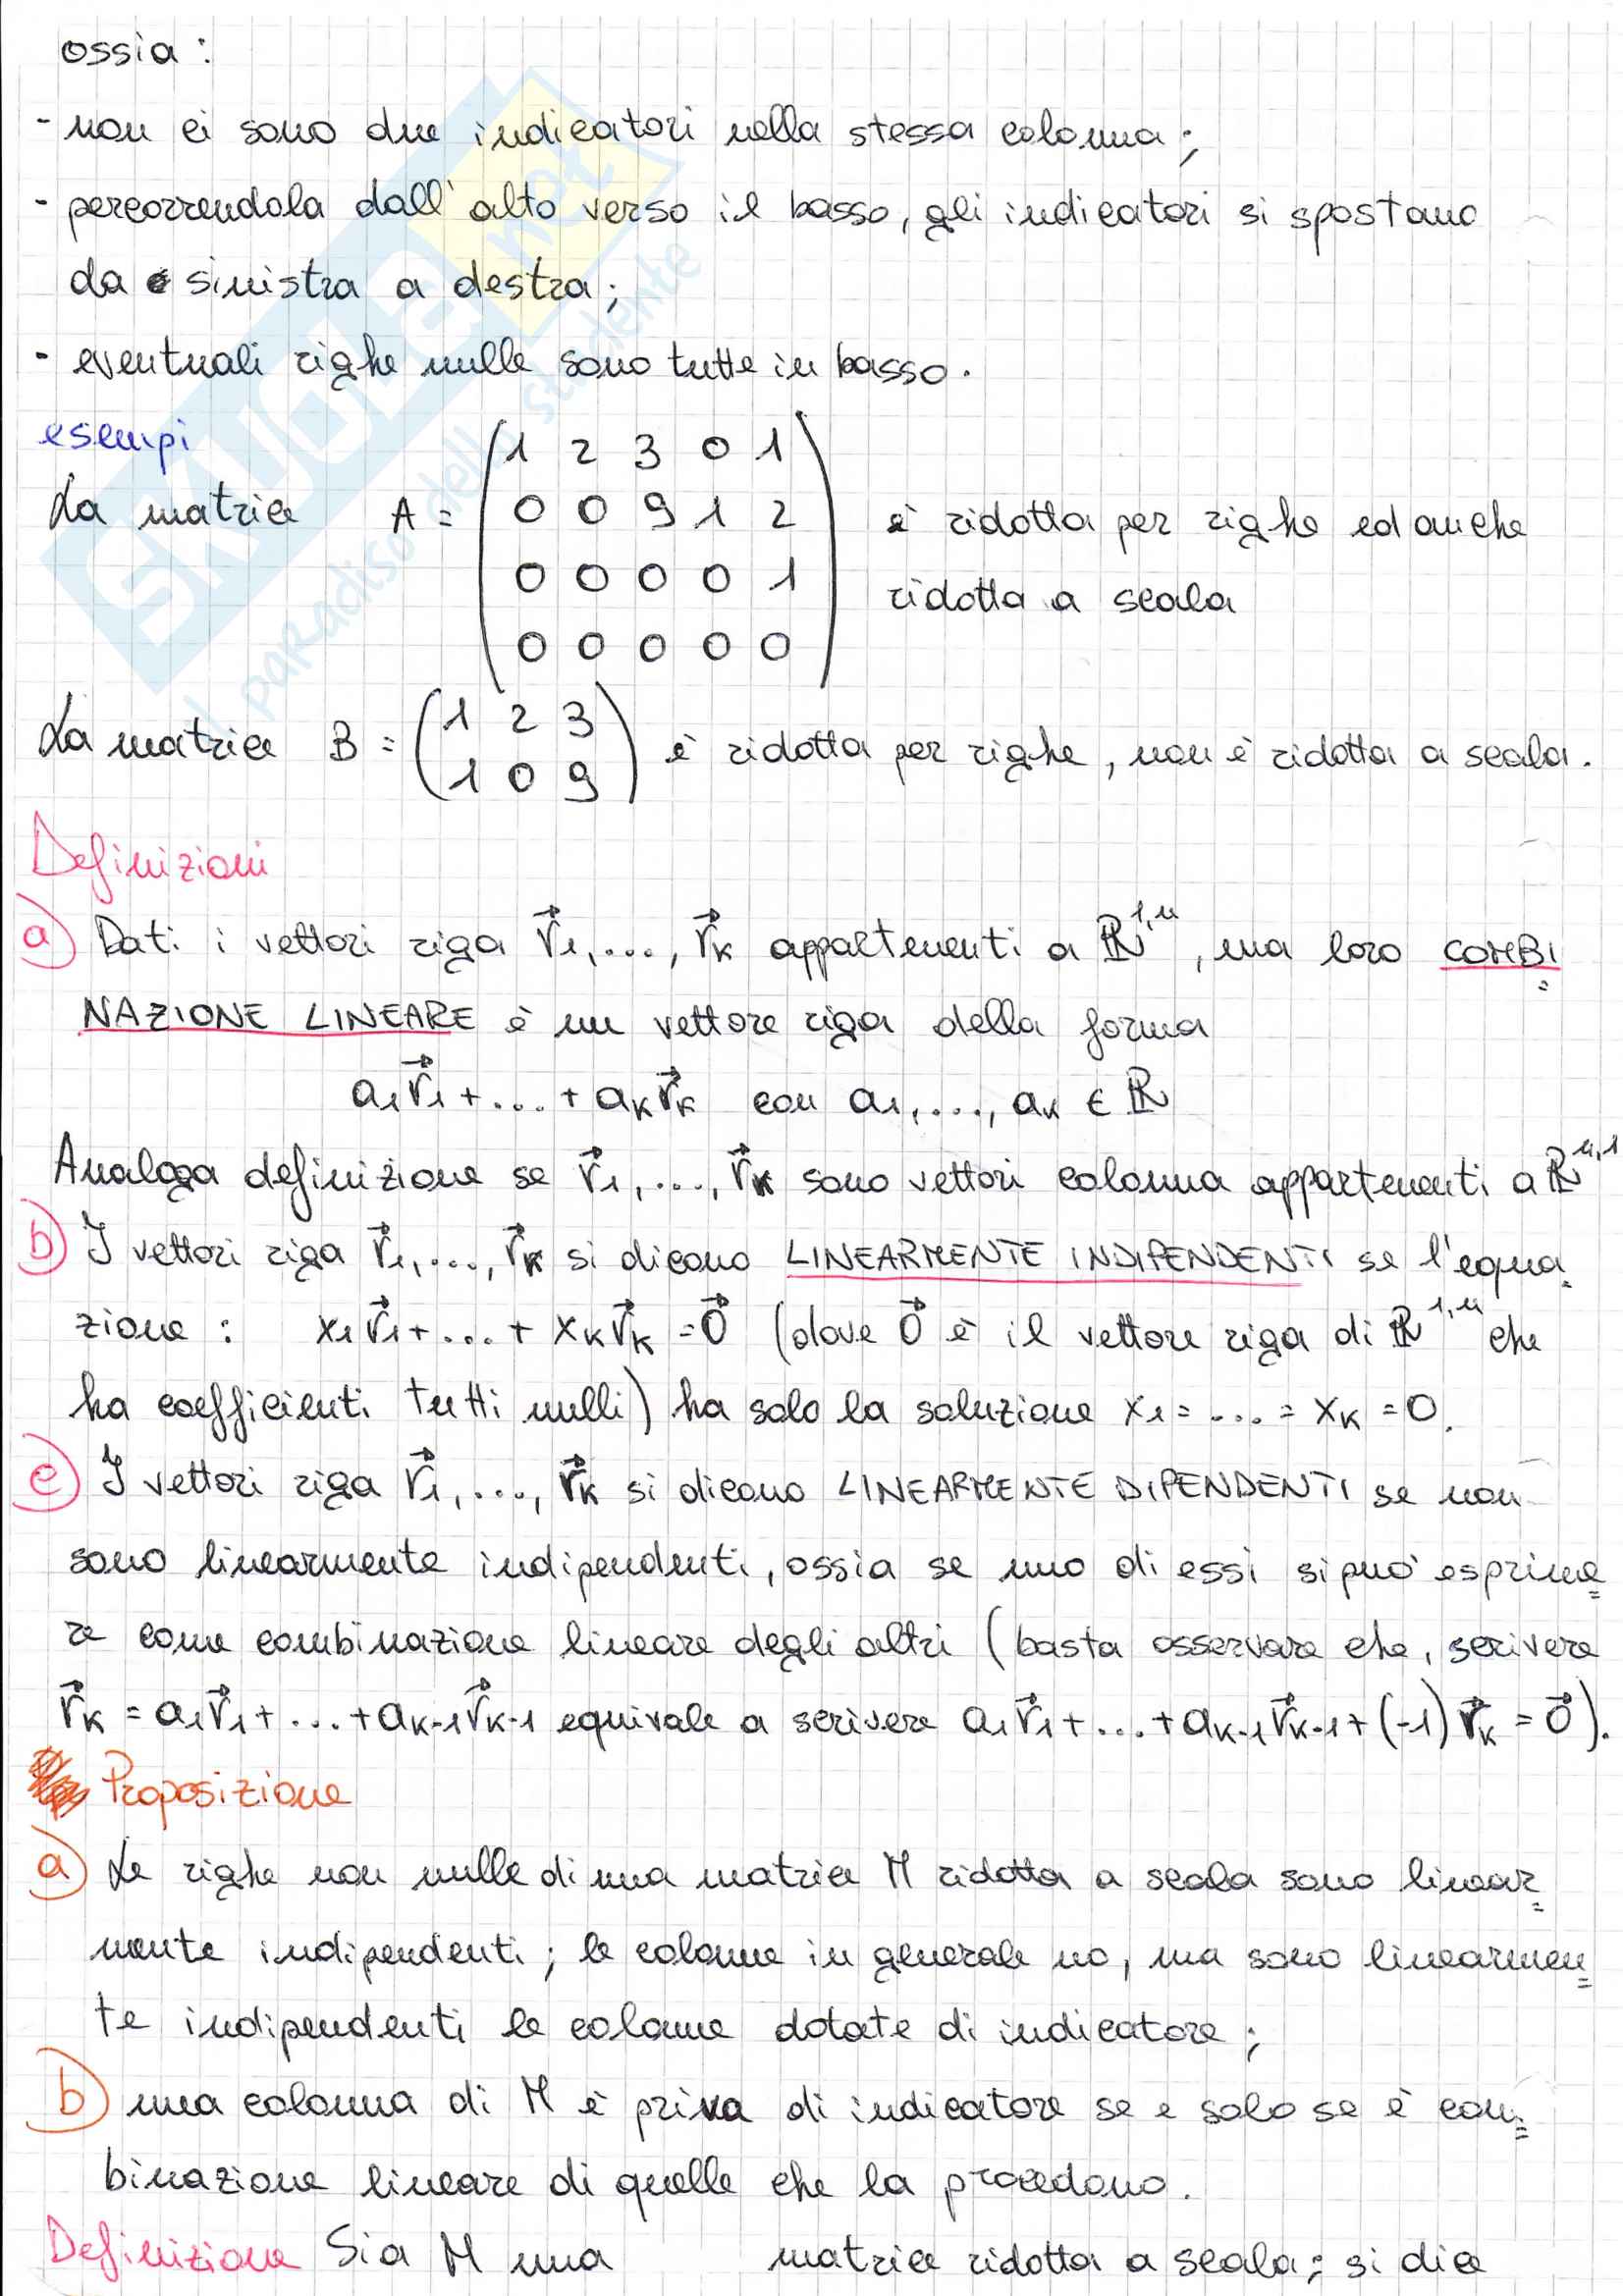 ossia :
- non ci sono due indicatori nella stessa colonna ;
- percorrendola dall'alto verso il basso, gli indicatori si spostano
da sinistra a destra ;
- eventuali righe nulle sono tutte in basso.
esempi
La matrice A = (1 2 3 0 1
0 0 9 1 2
0 0 0 0 1
0 0 0 0 0) è ridotta per righe ed anche
ridotta a scala
La matrice B = (1 2 3
1 0 9) è ridotta per righe, non è ridotta a scala.
Definizioni
a) Dati i vettori riga r⃗₁,..., r⃗ₖ appartenenti a ℝ^{1,n}, una loro COMBI
NAZIONE LINEARE è un vettore riga della forma
a₁r⃗₁+...+ aₖr⃗ₖ con a₁,..., aₖ ∈ ℝ
Analoga definizione se r⃗₁,..., r⃗ₖ sono vettori colonna appartenenti a ℝ^{n,1}
b) I vettori riga r⃗₁,..., r⃗ₖ si dicono LINEARMENTE INDIPENDENTI se l'equa
zione : x₁r⃗₁+...+ xₖr⃗ₖ = 0⃗ (dove 0⃗ è il vettore riga di ℝ^{1,n} che
ha coefficienti tutti nulli) ha solo la soluzione x₁ = ... = xₖ = 0.
c) I vettori riga r⃗₁,..., r⃗ₖ si dicono LINEARMENTE DIPENDENTI se non
sono linearmente indipendenti, ossia se uno di essi si può esprime
re come combinazione lineare degli altri (basta osservare che, scrivere
r⃗ₖ = a₁r⃗₁+...+aₖ₋₁r⃗ₖ₋₁ equivale a scrivere a₁r⃗₁+...+aₖ₋₁r⃗ₖ₋₁+(-1)r⃗ₖ = 0⃗).
Proposizione
a) Le righe non nulle di una matrice M ridotta a scala sono linear
mente indipendenti ; le colonne in generale no, ma sono linearmen
te indipendenti le colonne dotate di indicatore ;
b) una colonna di M è priva di indicatore se e solo se è com
binazione lineare di quelle che la precedono.
Definizione Sia M una matrice ridotta a scala ; si dice
SKUOLA.net
il paradiso dello studente